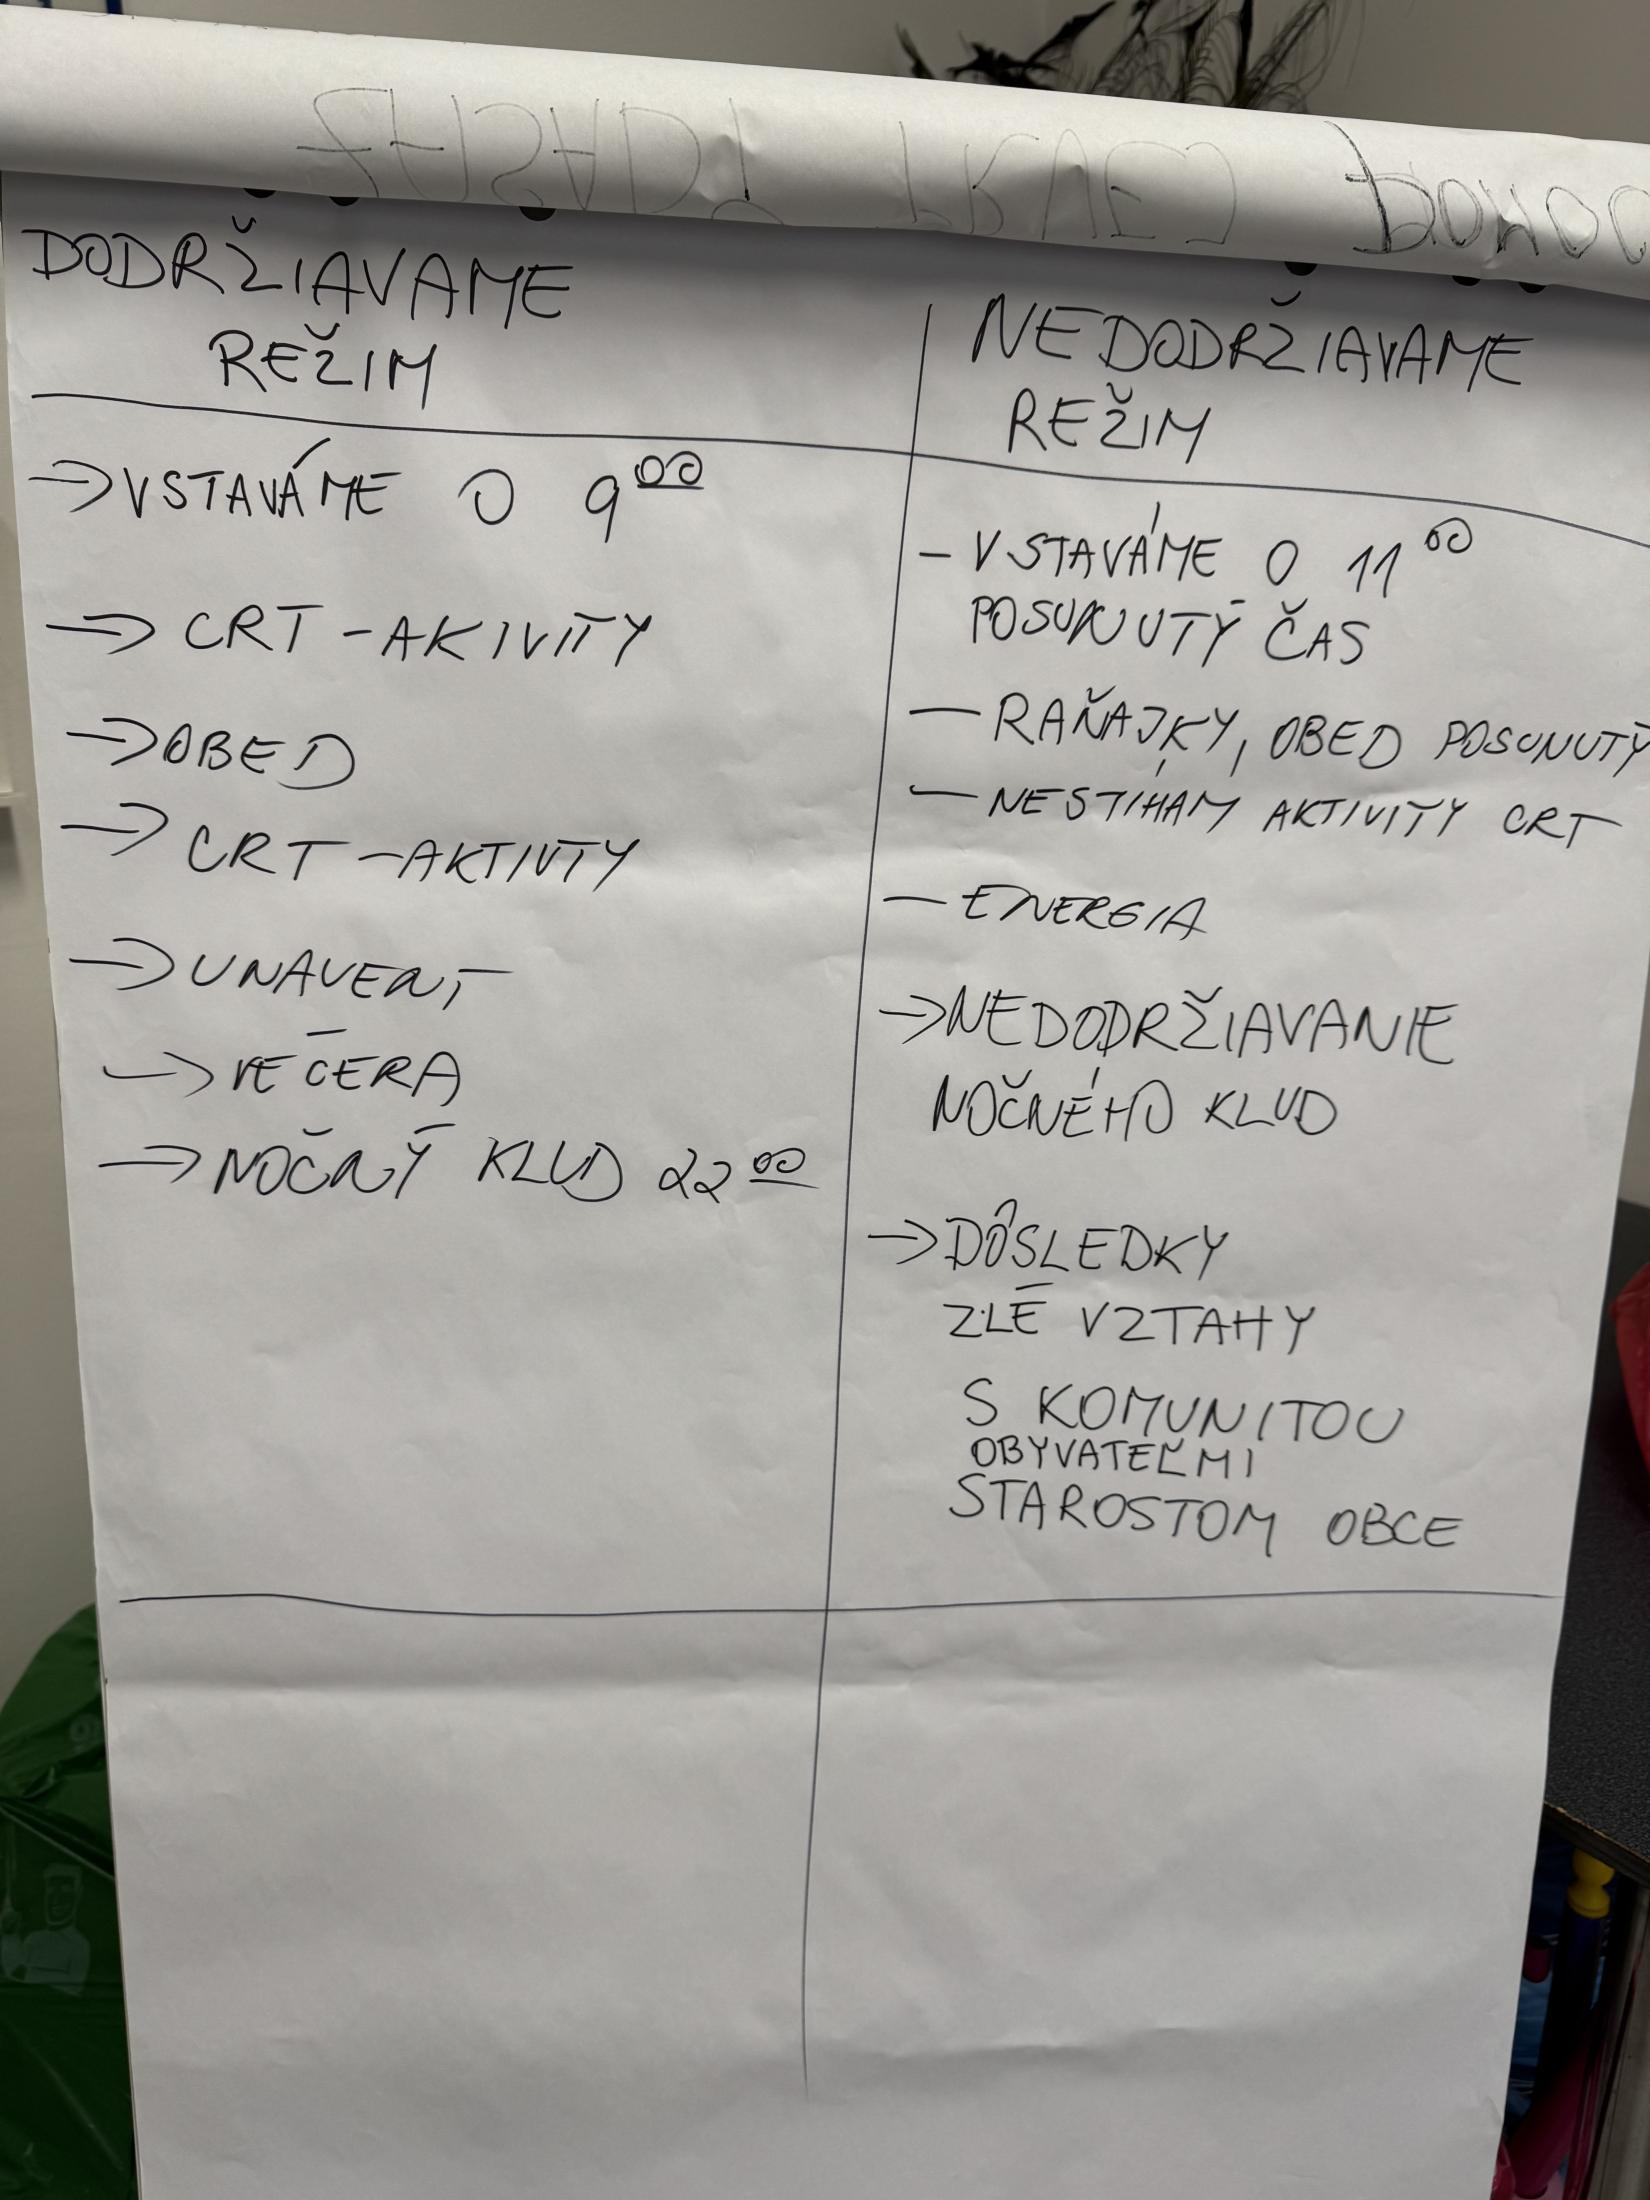 DODRŽIAVAME
REŽIM
→ VSTAVÁME O 9⁰⁰
→ CRT - AKIVITY
→ OBED
→ CRT - AKTIVTY
→ UNAVENÍ
→ VEČERA
→ NOČNÝ KLUD 22⁰⁰
NEDODRŽIAVAME
REŽIM
- VSTAVÁME O 11⁰⁰
POSUNUTÝ ČAS
- RAŇAJKY, OBED POSUNUTÝ
- NESTÍHAM AKTIVITY CRT
- ENERGIA
→ NEDODRŽIAVANIE
NOČNÉHO KLUD
→ DÔSLEDKY
ZLÉ VZTAHY
S KOMUNITOU
OBYVATEĽMI
STAROSTOM OBCE